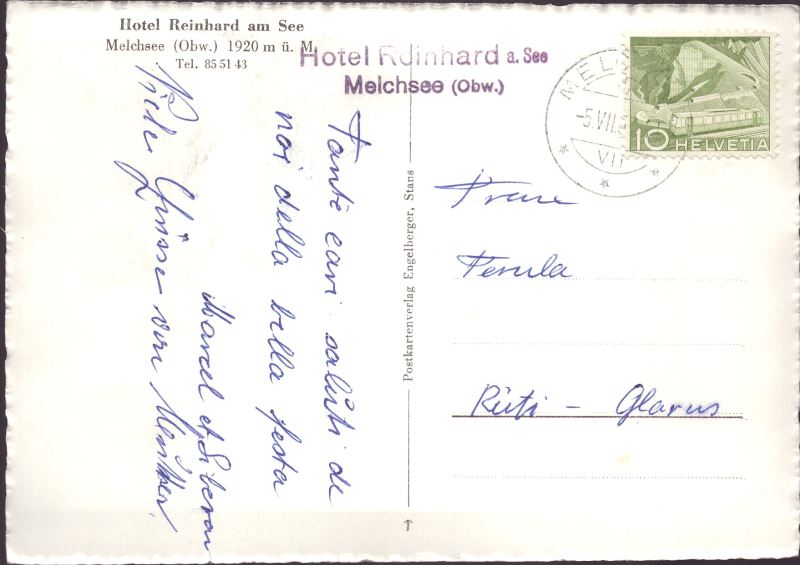 Hotel Reinhard am See
Melchsee (Obw.) 1920 m ü. M.
Tel. 85 51 43
Hotel Reinhard a. See
Melchsee (Obw.)
-5.VII
VII
10 HELVETIA
Tante cari saluti de
noi della bella festa
Marcel et
Viele Grüsse von
Postkartenverlag Engelberger, Stans
Rüti - Glarus